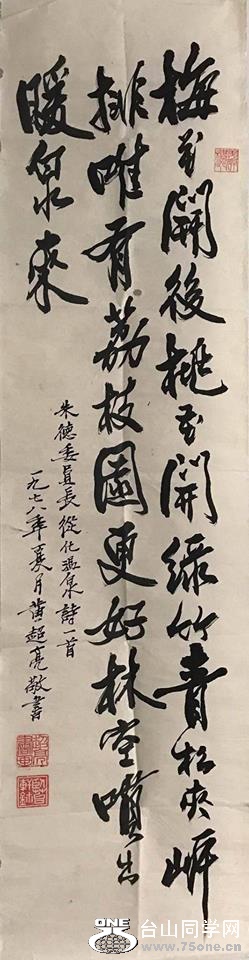 梅花開後桃花開绿竹青松夾岸
排唯有荔枝園更好林空噴出
暖泉來
朱德委員長從化温泉詩一首
一九七八年夏月黄超亮敬書
ONE 台山同学网
www.75one.cn